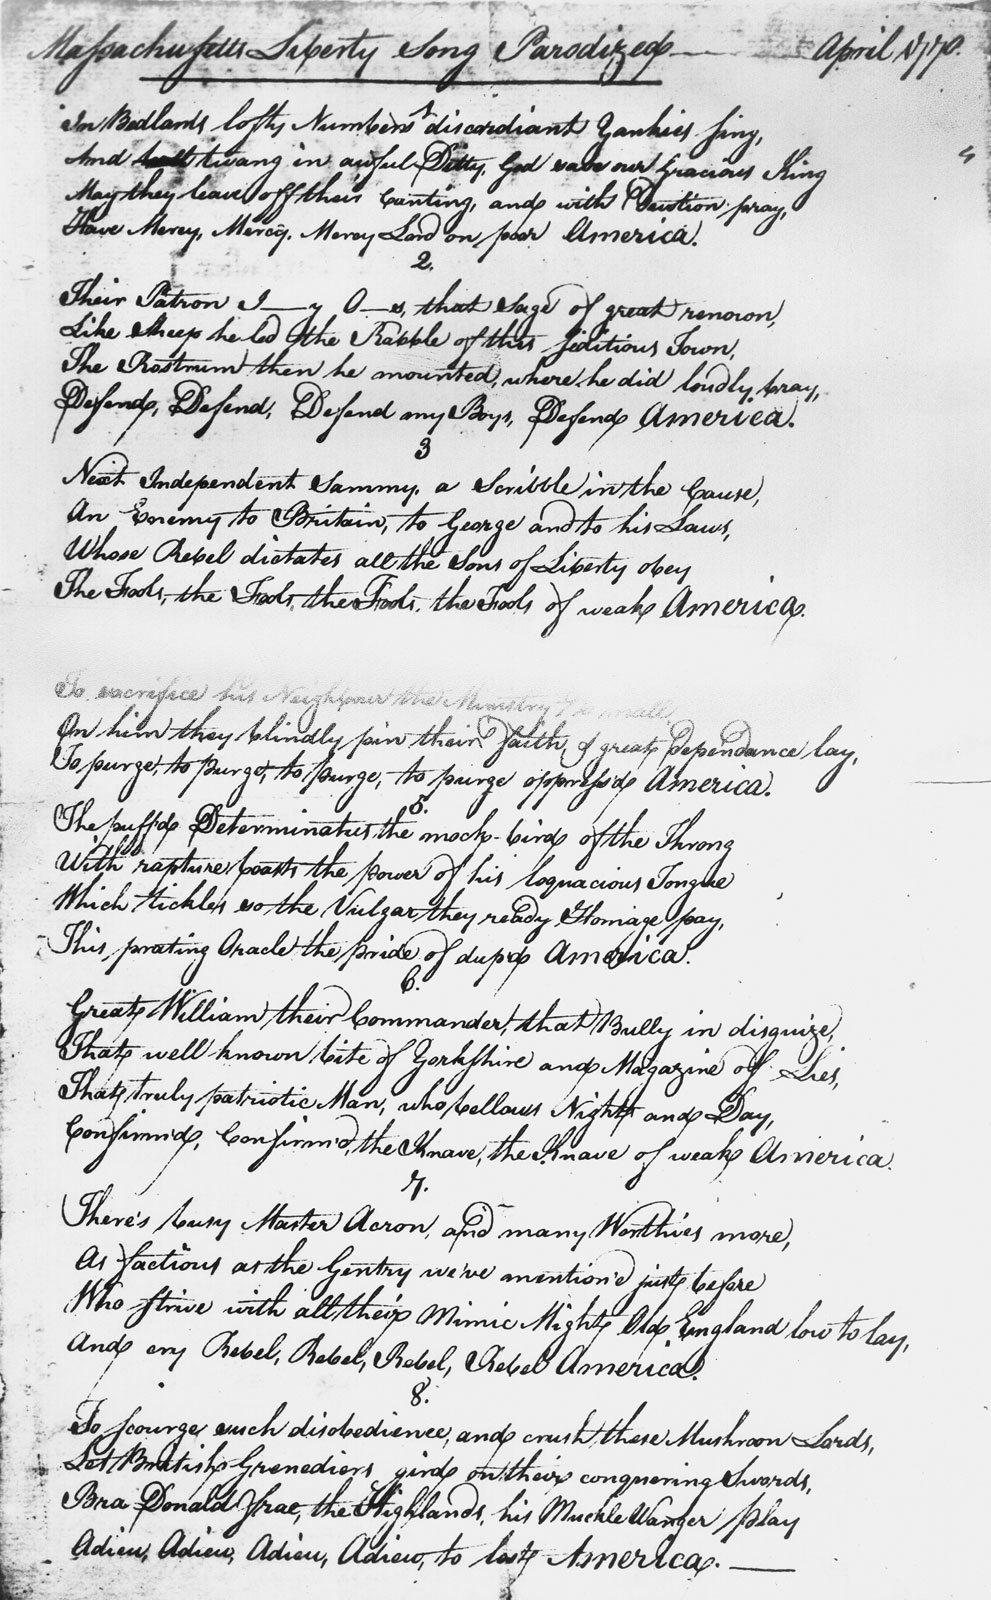 Massachusetts Liberty Song Parodized — April 1770.
In Bedlands lofty Numbers discordiant Yankies sing,
And twang in awful Ditty, God save our Gracious King
May they leave off their Canting, and with Devotion pray,
Have Mercy, Mercy, Mercy Lord on poor America.
2.
Their Patron J—y O—s, that Sage of great renown,
Like Sheep he led the Rabble of this seditious Town,
The Rostrum then he mounted, where he did loudly bray,
Defend, Defend, Defend my Boys, Defend America.
3
Next Independent Sammy, a Scribble in the Cause,
An Enemy to Britain, to George and to his Laws,
Whose Rebel dictates all the Sons of Liberty obey
The Fools, the Fools, the Fools, the Fools of weak America.
To sacrifice his Neighbour the Ministry
On him they blindly pin their faith, & great Dependance lay,
To purge, to purge, to purge, to purge oppress'd America.
5.
The puff'd Determinatus the mock-bird of the Throng
With rapture boasts the power of his loquacious Tongue
Which tickles so the Vulgar they ready Homage pay,
This prating Oracle the pride of dup'd America.
6.
Great William their Commander, that Bully in disguize,
That well known bite of Yorkshire and Magazine of Lies,
That truly patriotic Man, who bellows Night and Day,
Confirm'd, Confirm'd, the Knave, the Knave of weak America
7.
There's busy Master Acron, and many Worthies more,
As factious as the Gentry we've mention'd just before
Who strive with all their Mimic Might Old England low to lay,
And cry Rebel, Rebel, Rebel, Rebel America.
8.
To scourge such disobedience, and crush these Mushroon Lords,
Let British Grenediers gird on their conquering Swords,
Bra Donald frae, the Highlands, his Muckle Wanger play
Adieu, Adieu, Adieu, Adieu, to lost America. —